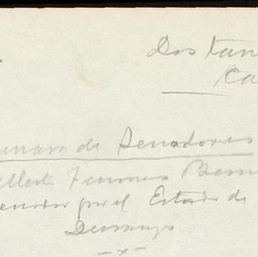 Dos tan
Ca
mara de Senadores
lberto Terrones Beni
enador por el Estado de
Durango
-x-